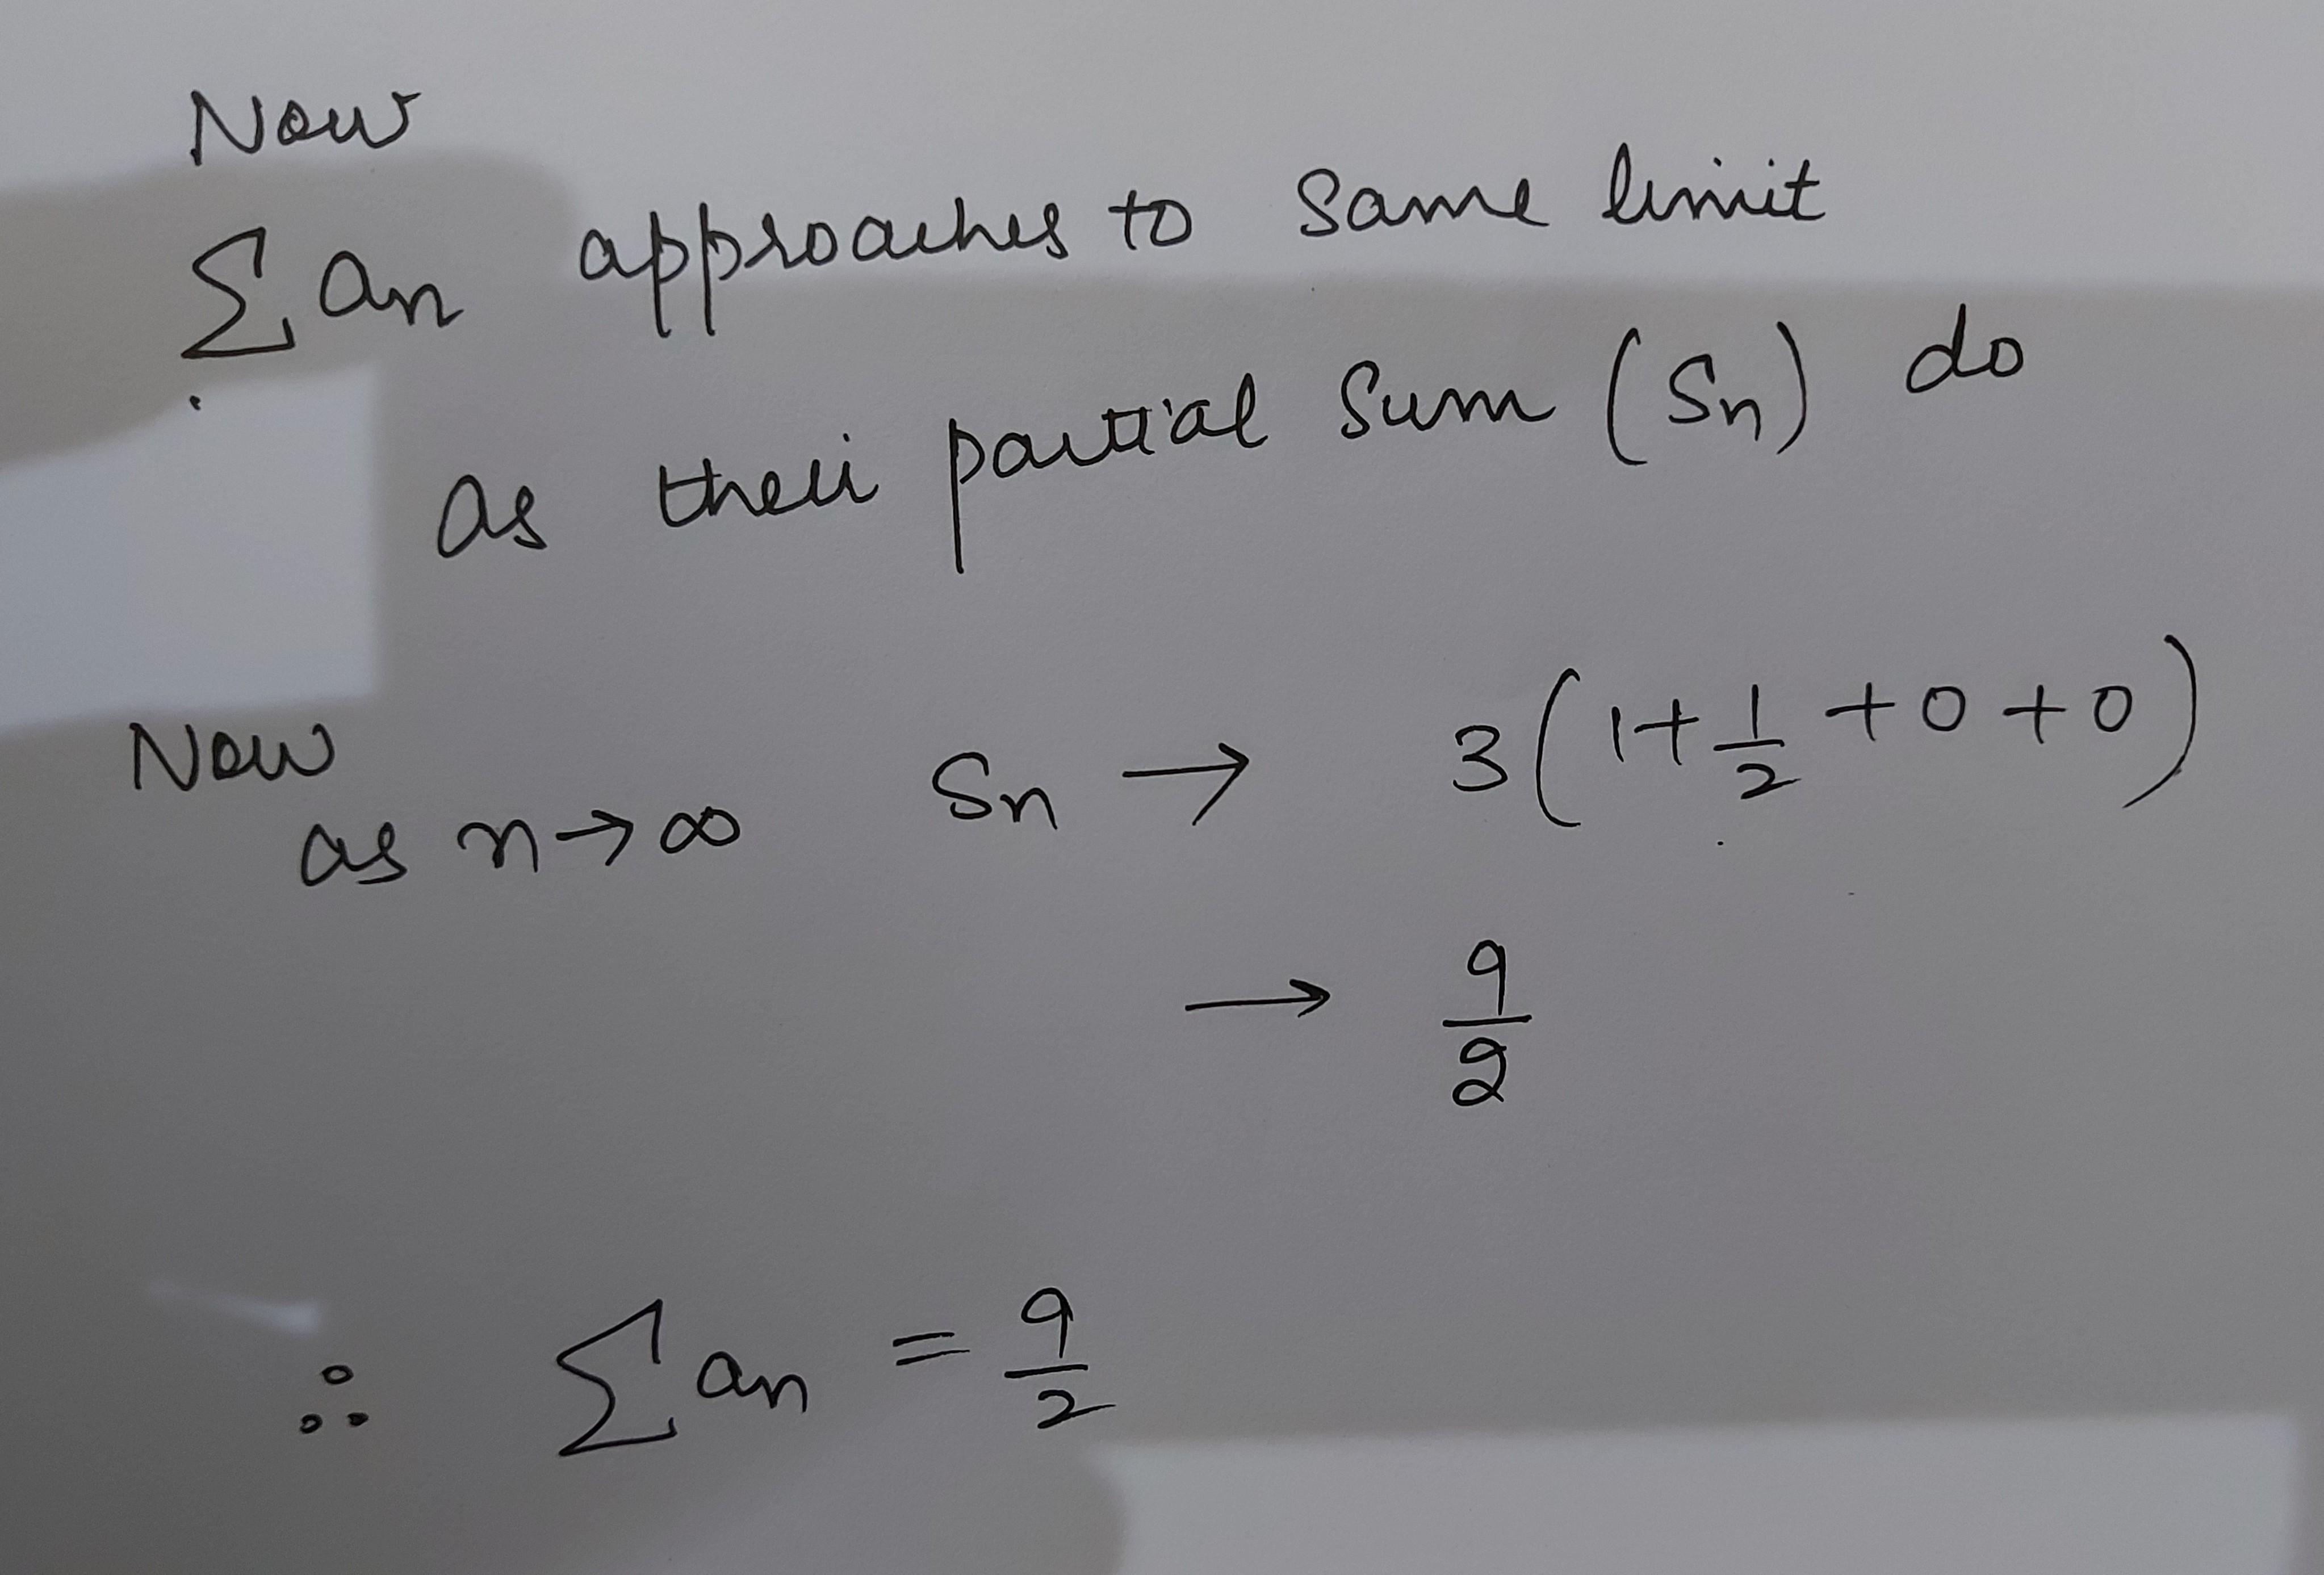 Now
∑ an approaches to same limit
as their partial sum (Sn) do
Now
as n→∞ Sn → 3(1+1/2+0+0)
→ 9/2
∴ ∑ an = 9/2